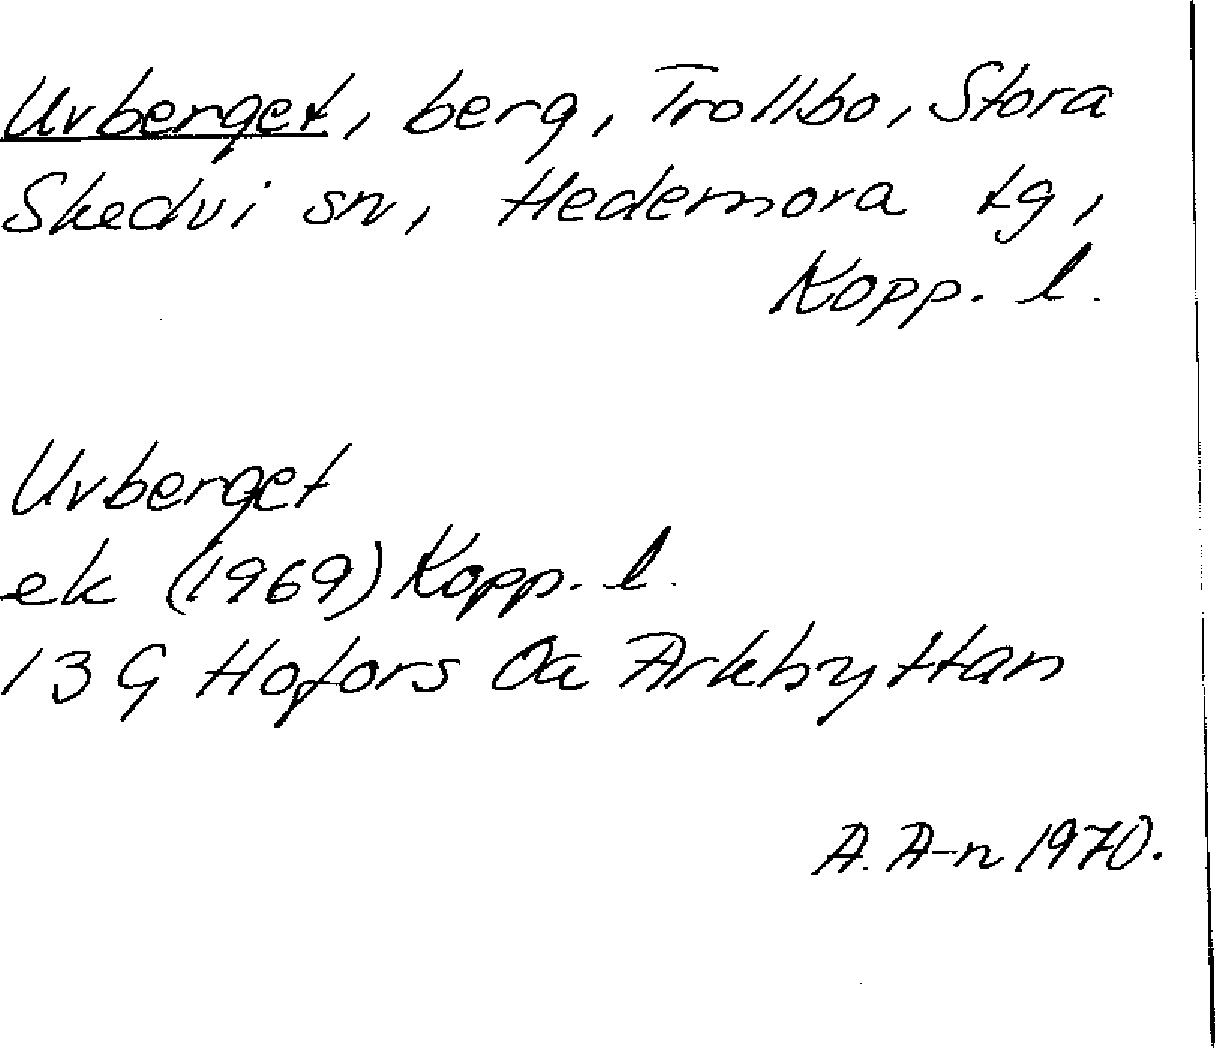 Uvberget, berg, Trollbo, Stora
Skedvi sn, Hedemora tg,
Kopp. l.
Uvberget
ek (1969) Kopp. l.
13 G Hofors 0a Arkhyttan
A. A-n 1970.